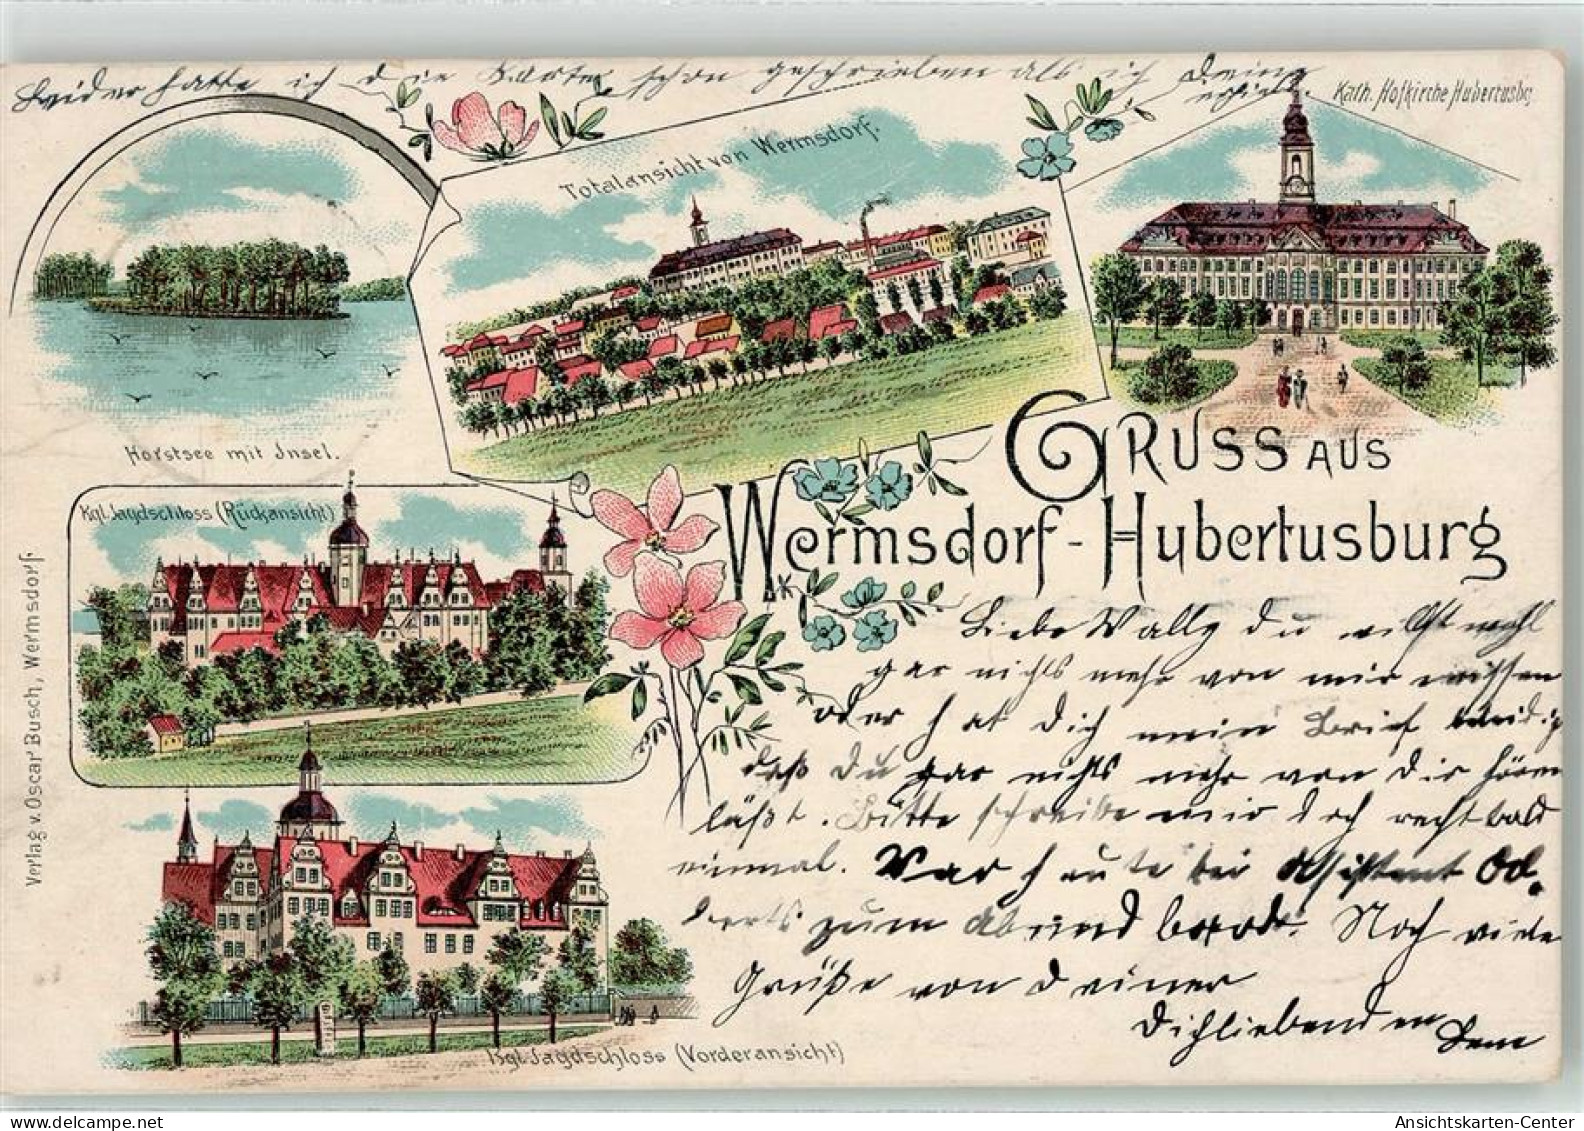 Leider hatte ich die Karte schon geschrieben als ich Deine
erhielt.
Kath. Hofkirche Hubertusbg
Totalansicht von Wermsdorf.
Horstsee mit Insel.
GRUSS AUS
Wermsdorf-Hubertusburg
Kgl. Jagdschloss (Rückansicht)
Verlag v. Oscar Busch, Wermsdorf.
Liebe Wally du willst wohl
gar nichts mehr von mir wissen
oder hat Dich mein Brief
daß Du gar nichts mehr von Dir hören
läßt. Bitte schreibe mir doch recht bald
einmal. War heute bei Assistent
zum Abendbrod. Noch viele
Grüße von Deiner
Dichliebenden
Kgl. Jagdschloss (Vorderansicht)
Ansichtskarten-Center